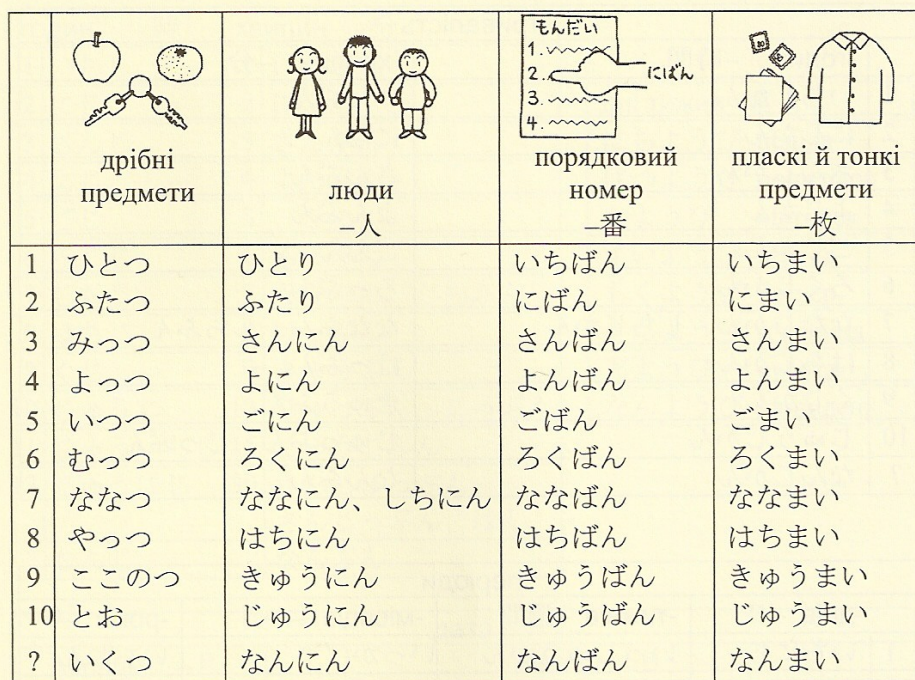 もんだい
1.
2. にばん
3.
4.
дрібні предмети
люди
–人
порядковий номер
–番
пласкі й тонкі предмети
–枚
1 ひとつ ひとり いちばん いちまい
2 ふたつ ふたり にばん にまい
3 みっつ さんにん さんばん さんまい
4 よっつ よにん よんばん よんまい
5 いつつ ごにん ごばん ごまい
6 むっつ ろくにん ろくばん ろくまい
7 ななつ ななにん、しちにん ななばん ななまい
8 やっつ はちにん はちばん はちまい
9 ここのつ きゅうにん きゅうばん きゅうまい
10 とお じゅうにん じゅうばん じゅうまい
? いくつ なんにん なんばん なんまい